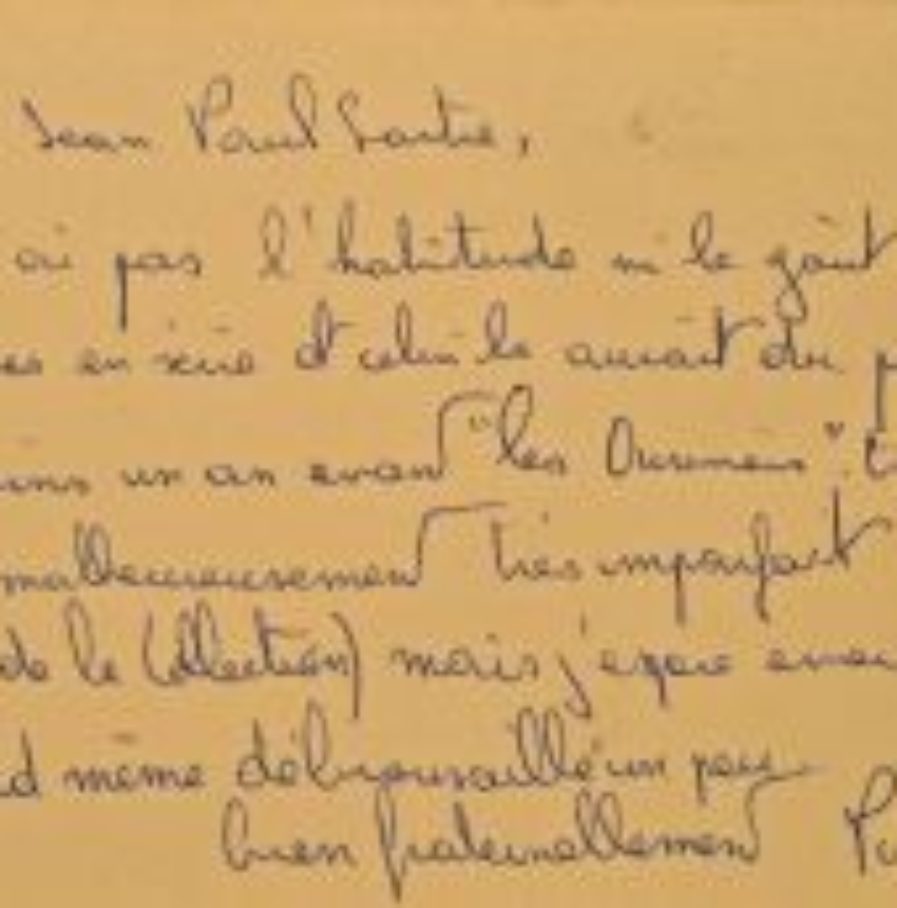 Jean Paul Sartre,
ai pas l'habitude ni le goût
en série et celui là aurait du
un an avant "les Ouvriers".
malheureusement très imparfait
de la Collection) mais j'espère avoir
même débroussaillé un peu
bien fraternellement